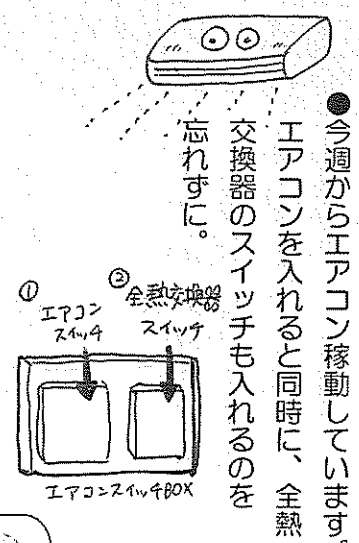 ●今週からエアコン稼動しています。
エアコンを入れると同時に、全熱
交換器のスイッチも入れるのを
忘れずに。
①
エアコン
スイッチ
②
全熱交換器
スイッチ
エアコンスイッチBOX